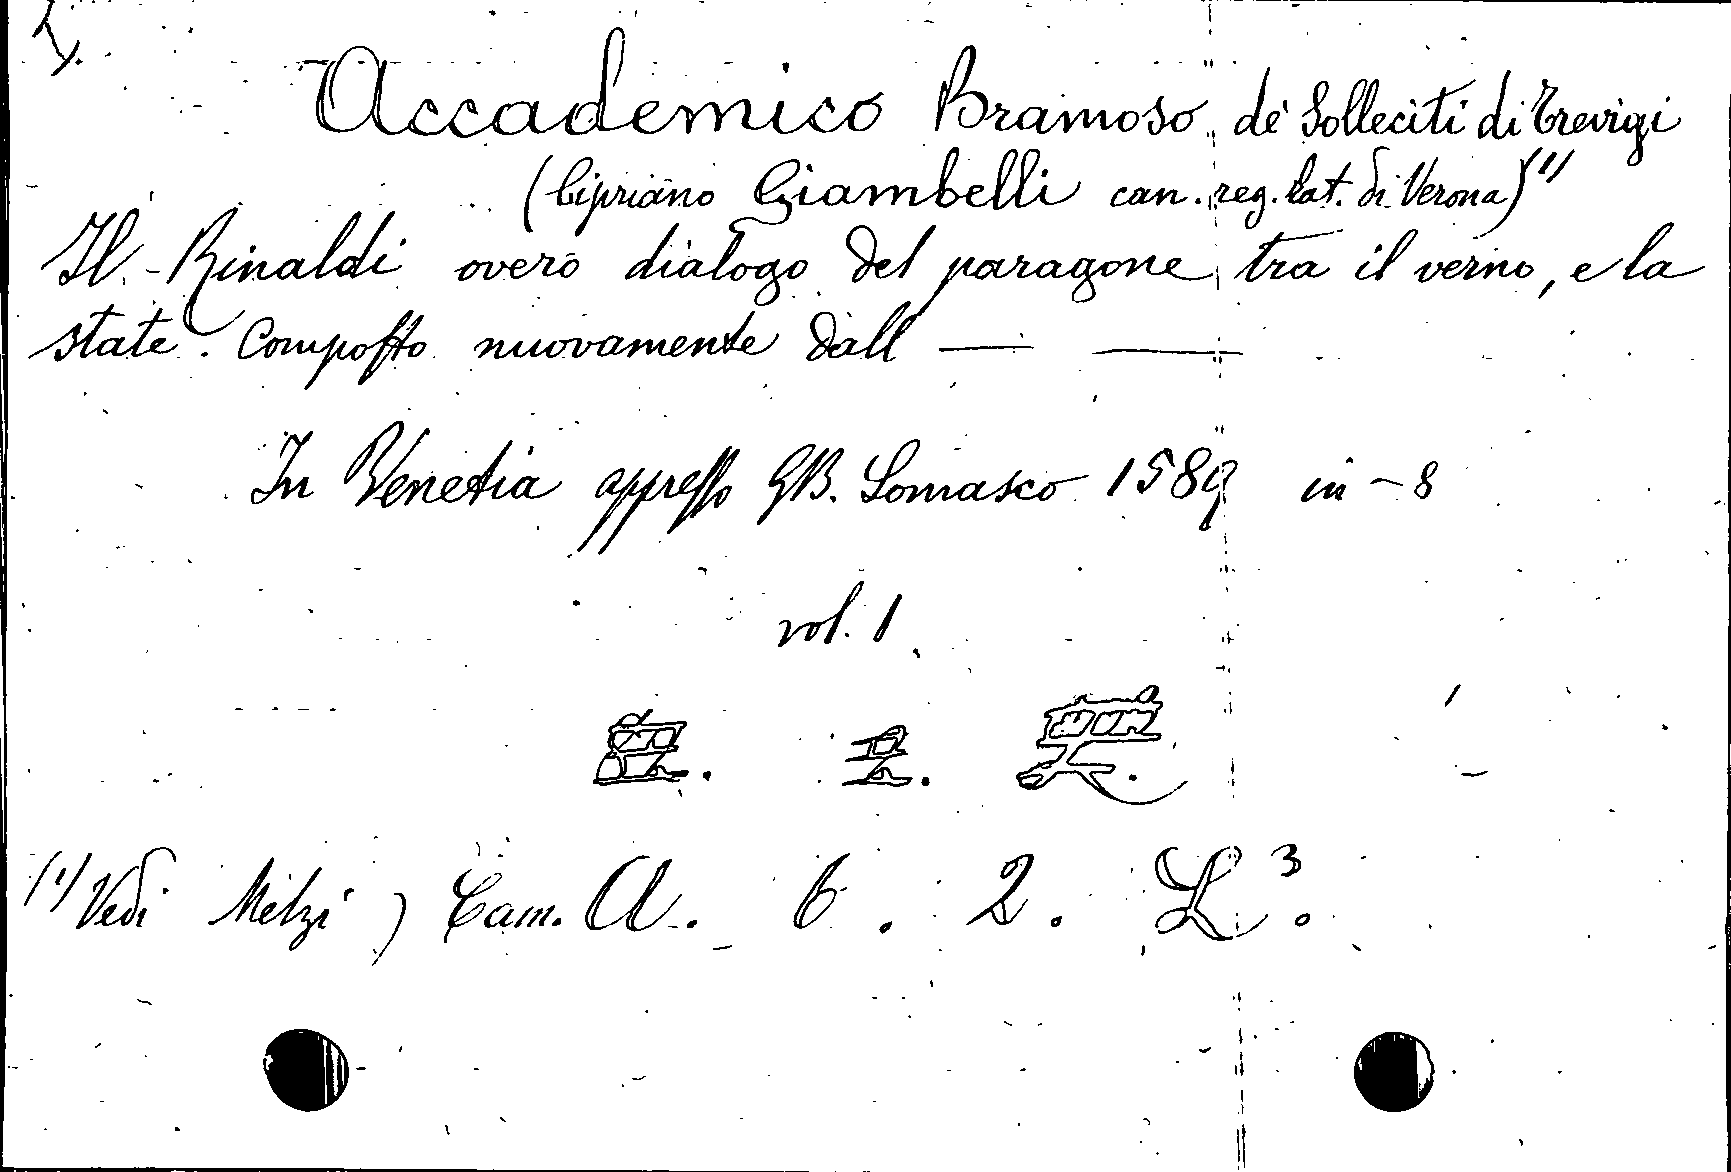 Accademico Bramoso de' Solleciti di Trevigi
(Cipriano Giambelli can. reg. lat. di Verona)(1)
Il Rinaldi overo dialogo del paragone tra il verno, e la
state. Compoſto nuovamente dall — —
In Venetia appreſſo GB. Somasco 1589 in-8
vol. 1
(1) Vedi Melzi) Cam. A. 6. 2. L³.